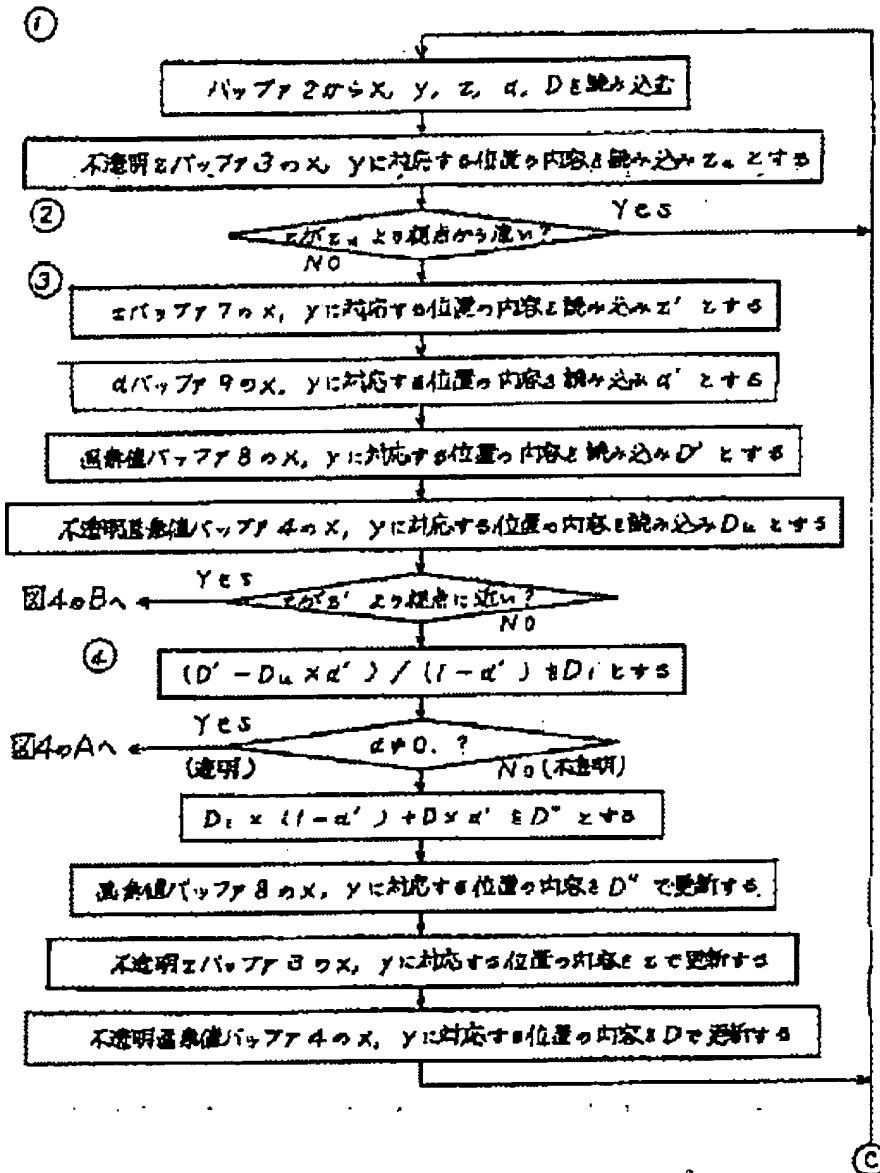 ①
バッファ2からx, y, z, α, Dを読み込む
不透明zバッファ3のx, yに対応する位置の内容を読み込みzuとする
②
zがzuより視点から遠い?
Yes
NO
③
zバッファ7のx, yに対応する位置の内容を読み込みz'とする
αバッファ9のx, yに対応する位置の内容を読み込みα'とする
画素値バッファ8のx, yに対応する位置の内容を読み込みD'とする
不透明画素値バッファ4のx, yに対応する位置の内容を読み込みDuとする
図4のBへ
Yes
zがz'より視点に近い?
NO
④
(D'-Du×α')/(1-α')をDiとする
図4のAへ
Yes
(透明)
α≠0.?
No(不透明)
Di×(1-α')+D×α'をD"とする
画素値バッファ8のx, yに対応する位置の内容をD"で更新する
不透明zバッファ3のx, yに対応する位置の内容をzで更新する
不透明画素値バッファ4のx, yに対応する位置の内容をDで更新する
C